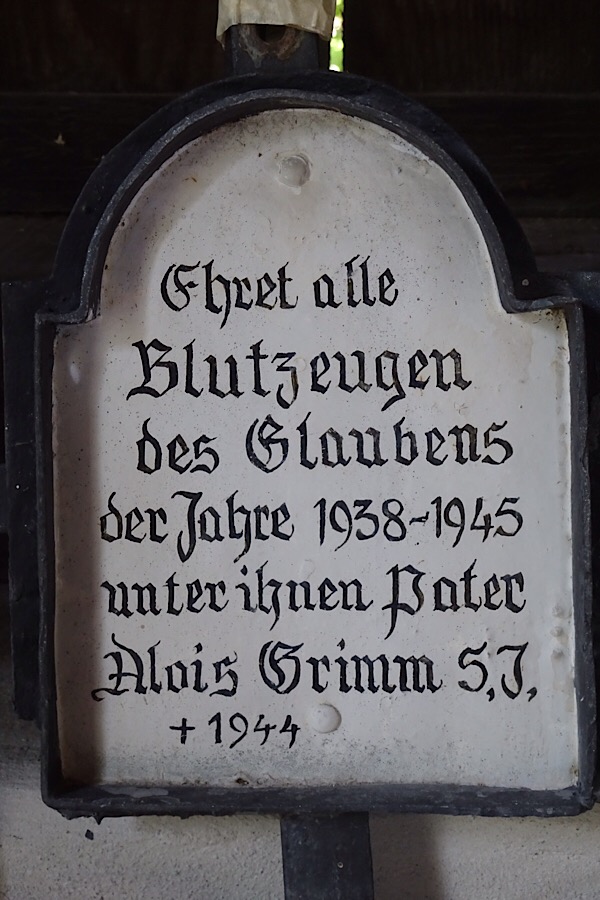 Ehret alle
Blutzeugen
des Glaubens
der Jahre 1938-1945
unter ihnen Pater
Alois Grimm S.J.
+ 1944